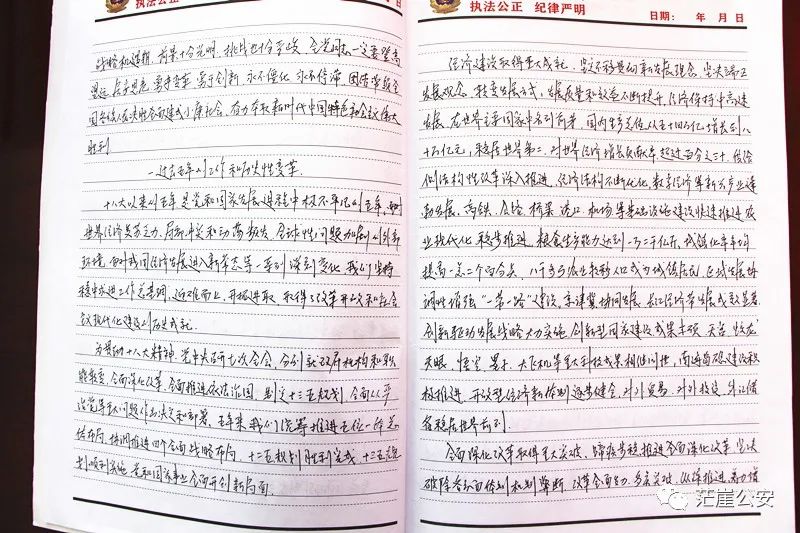 执法公正 纪律严明
战略机遇期，前景十分光明，挑战也十分严峻。全党同志一定要登高
望远、居安思危，勇于变革、勇于创新，永不僵化、永不停滞，团结带领全
国各族人民决胜全面建成小康社会，奋力夺取新时代中国特色社会主义伟大
胜利
一、过去五年的工作和历史性变革.
十八大以来的五年是党和国家发展进程中极不平凡的五年，面对
世界经济复苏乏力、局部冲突和动荡频发、全球性问题加剧的外部
环境，面对我国经济发展进入新常态等一系列深刻变化，我们坚持
稳中求进工作总基调，迎难而上，开拓进取，取得了改革开放和社会主
义现代化建设的历史成就.
为贯彻十八大精神，党中央召开七次全会，分别就政府机构和职
能转变、全面深化改革、全面推进依法治国、制定十三五规划、全面从严
治党等重大问题作出决定和部署。五年来，我们统筹推进五位一体总
体布局、协调推进四个全面战略布局，十二五规划胜利完成，十三五规
划顺利实施，党和国家事业全面开创新局面.
执法公正 纪律严明
日期： 年 月 日
经济建设取得重大成就，坚定不移贯彻新发展理念，坚决端正
发展观念、转变发展方式，发展质量和效益不断提升，经济保持中高速
发展，在世界主要国家中名列前茅，国内生产总值从五十四万亿增长到八
十万亿元，稳居世界第二，对世界经济增长贡献率超过百分之三十，供给
侧结构性改革深入推进，经济结构不断优化，数字经济等新兴产业蓬
勃发展，高铁、公路、桥梁、港口、机场等基础设施建设快速推进，农
业现代化稳步推进，粮食生产能力达到一万二千亿斤，城镇化率年均
提高一点二个百分点，八千多万农业转移人口成为城镇居民，区域发展协
调性增强，“一带一路”建设、京津冀协同发展、长江经济带发展成效显著，
创新驱动发展战略大力实施，创新型国家建设成果丰硕，天宫、蛟龙、
天眼、悟空、墨子、大飞机等重大科技成果相继问世，南海岛礁建设积
极推进，开放型经济新体制逐步健全，对外贸易、对外投资、外汇储
备稳居世界前列.
全面深化改革取得重大突破，蹄疾步稳推进全面深化改革，坚决
破除各方面体制机制弊端，改革全面发力、多点突破、纵深推进，着力增
茫崖公安